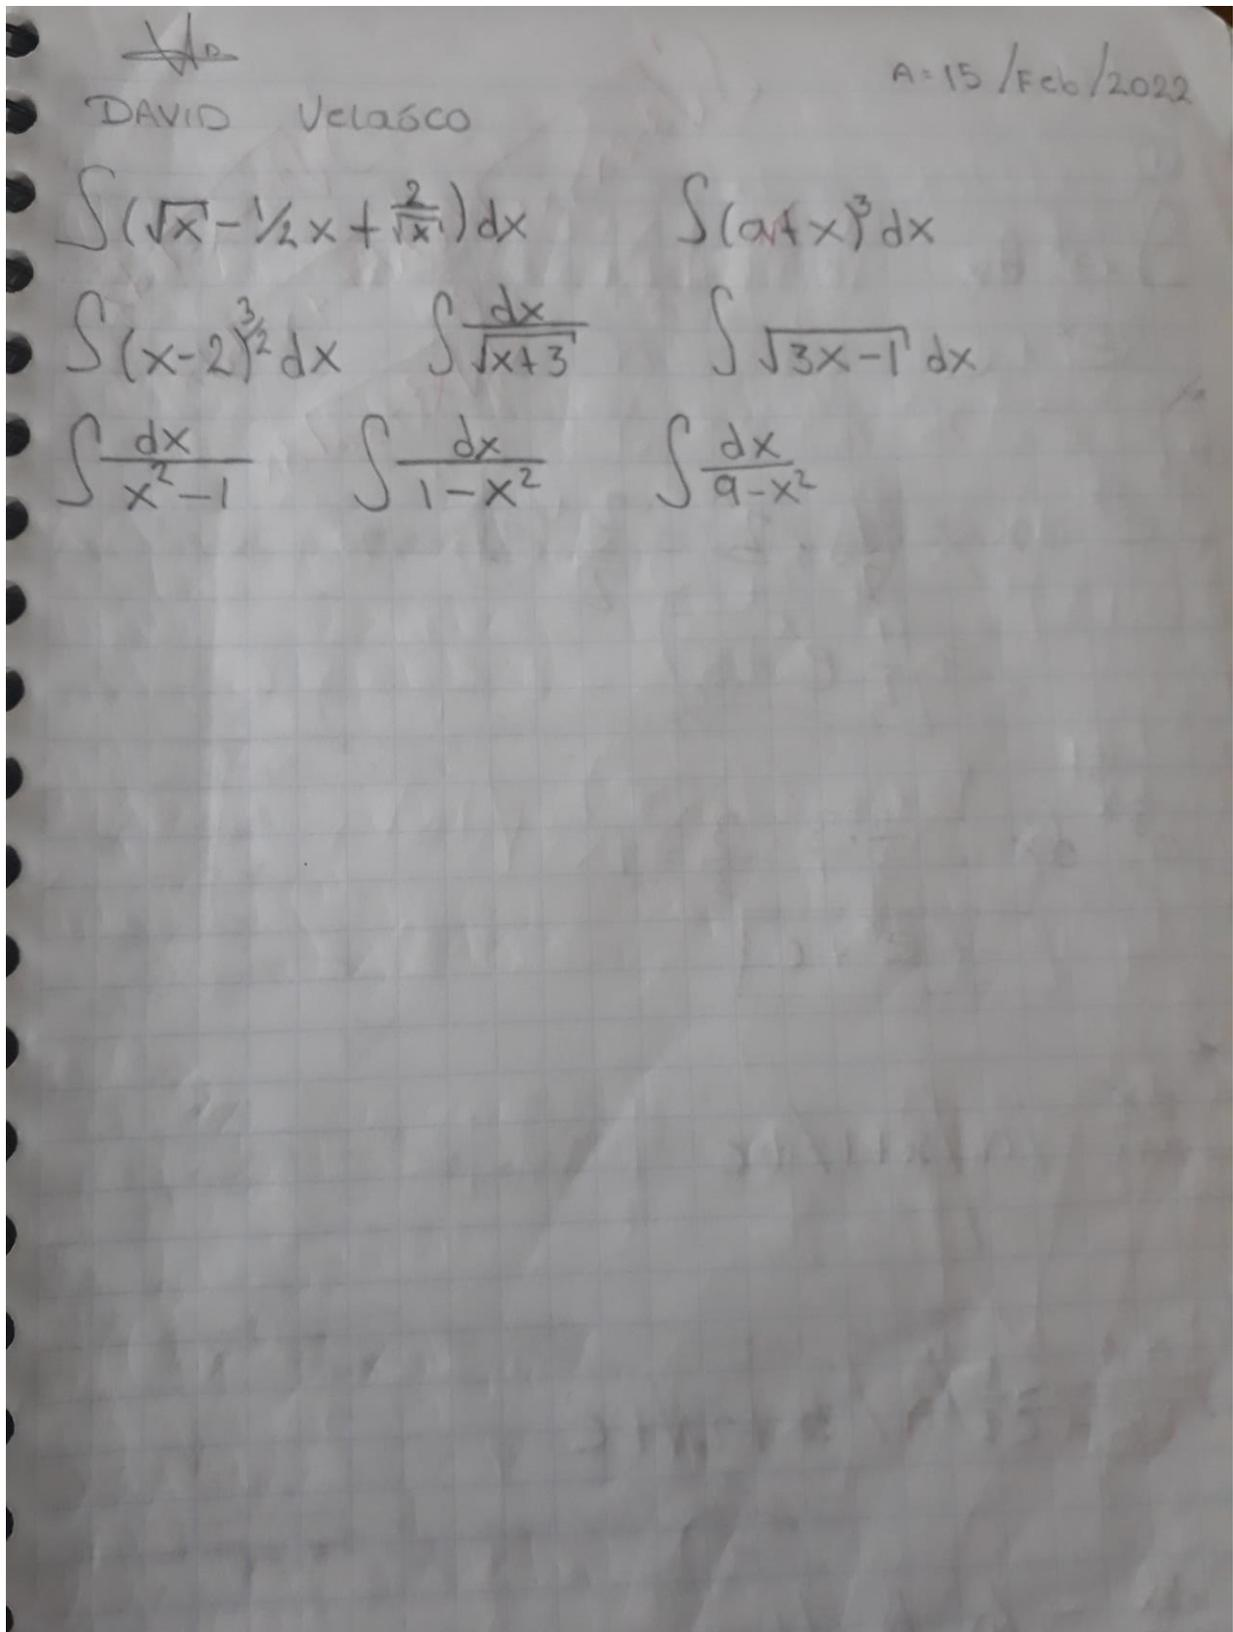 A=15/Feb/2022
DAVID Velasco
∫(√x - 1/2x + 2/√x)dx ∫(a+x)³dx
∫(x-2)^3/2 dx ∫dx/√x+3 ∫√3x-1 dx
∫dx/x²-1 ∫dx/1-x² ∫dx/9-x²